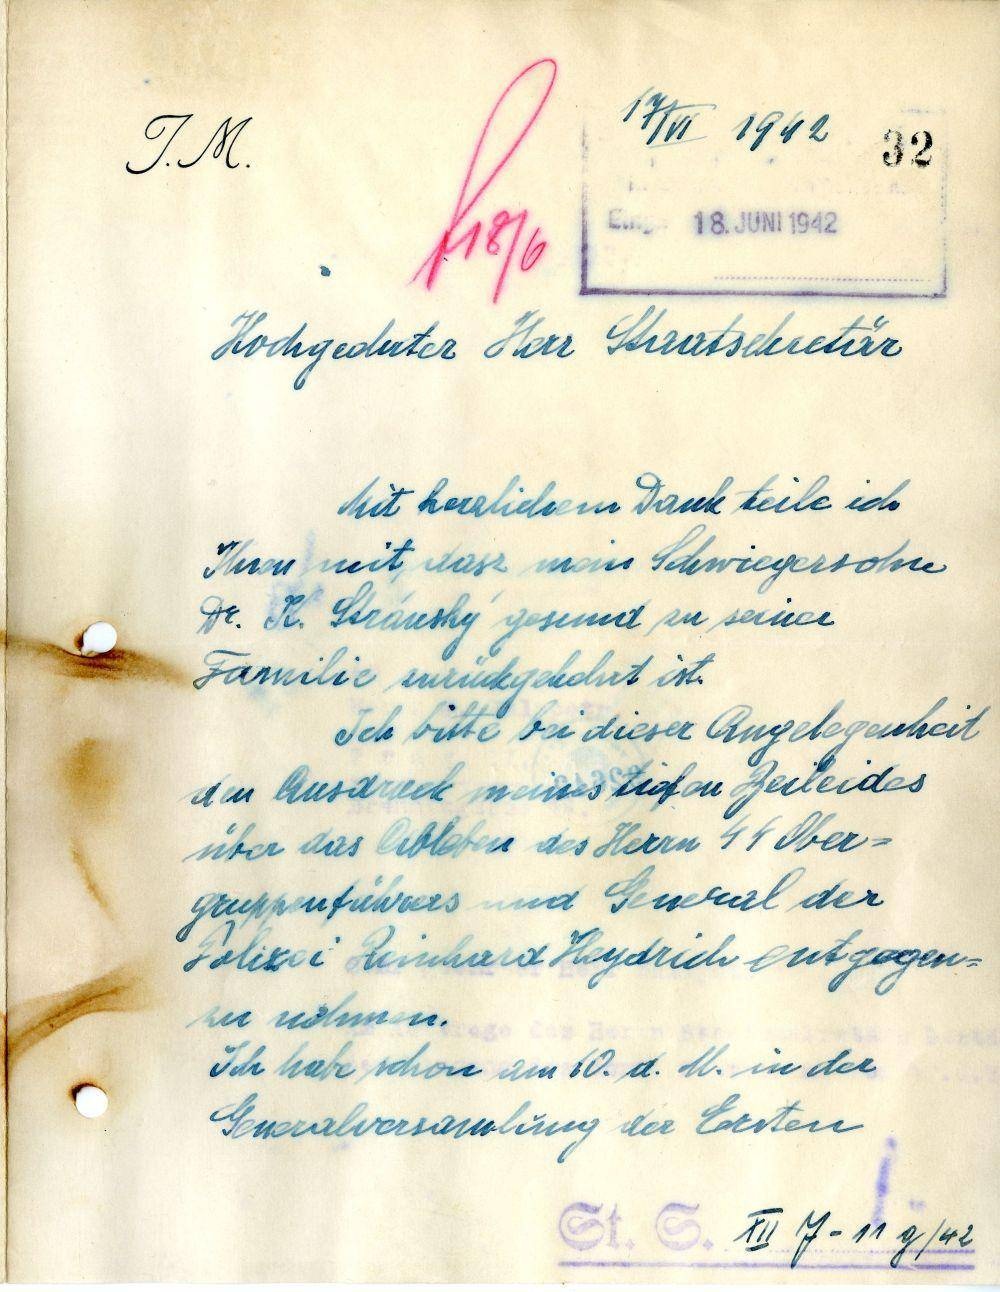 J. M.
17/VI 1942
32
18. JUNI 1942
18/6
Hochgeehrter Herr Staatsekretär
Mit herzlichem Dank teile ich
Ihnen mit, dasz mein Schwiegersohn
Dr. K. Stránský gesund zu seiner
Familie zurückgekehrt ist.
Ich bitte bei dieser Angelegenheit
den Ausdruck meines tiefen Beileides
über das Ableben des Herrn SS Ober=
gruppenführers und General der
Polizei Reinhard Heydrich entgegen=
zu nehmen.
Ich habe schon am 10. d. M. in der
Generalversamlung der Ersten
St. S. XII J - 11 g/42